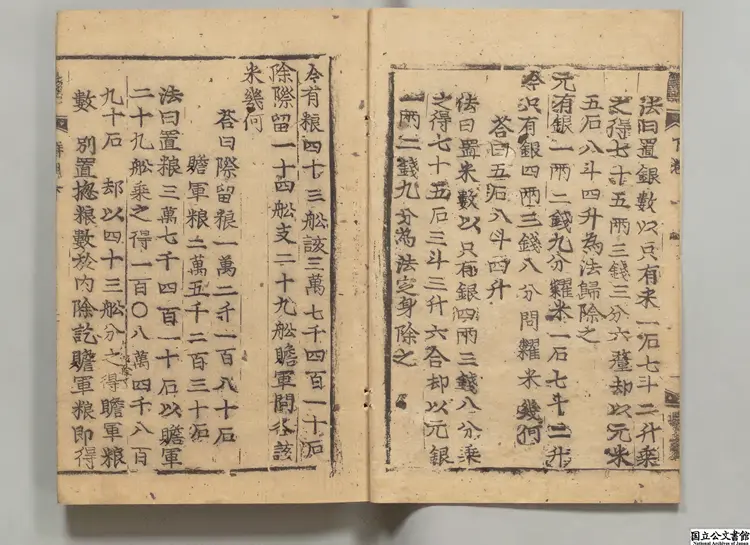 法曰置銀數以只有米一石七斗二升乘
之得七十五兩三錢三分六釐却以元米
五石八斗四升為法歸除之
元有銀一兩二錢九分糴米一石七斗二升
今只有銀四兩三錢八分問糴米幾何
荅曰五石八斗四升
法曰置米數以只有銀四兩三錢八分乘
之得七十五石三斗三升六合却以元銀
一兩二錢九分為法定身除之
今有粮四十三舡該三萬七千四百一十石
除際留一十四舡支二十九舡贍軍問各該
米幾何
荅曰際留粮一萬二千一百八十石
贍軍粮二萬五千二百三十石
法曰置粮三萬七千四百一十石以贍軍
二十九舡乘之得一百〇八萬四千八百
九十石 却以四十三舡分之得贍軍粮
數 別置揔粮數於內除訖贍軍粮即得
国立公文書館
National Archives of Japan